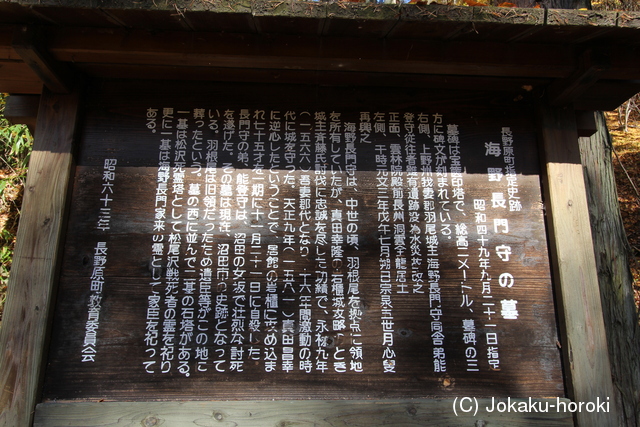 長野原町指定史跡
海野長門守の墓
昭和四十九年九月二十一日指定
墓碑は宝篋印塔で、総高二メートル、墓碑の三
方に碑文が刻まれている。
右側、上野州我妻郡羽尾城主海野長門守同舎弟能
登守従
正面、雲林院殿前長州
左側、干時元文二年
再興之
海野長門守は、中世の頃、羽根尾を拠点に領地
を所有していたが、真田幸隆の岩櫃城攻略のとき
城主斉藤氏討伐に忠誠を尽した功績で、永禄九年
(一五六六)吾妻郡代となり、十六年間激動の時
代に城を守った。天正九年(一五八一)真田昌幸
に逆心したということで、居館の岩櫃に攻め込ま
れ七十五才を一期に十一月二十一日に自殺した。
長門守の弟、能登守は、沼田の女坂で壮烈な討死
を遂げた。その墓は現在、沼田市の史跡となって
いる。羽根尾は旧領だったため遺臣等がこの地に
葬ったという。墓の西に並んで二基の石塔がある。
一基は松沢死霊塔として松尾沢戦死者の霊を祀り
更に一基は海野長門家来の霊として家臣を祀って
ある。
昭和六十三年 長野原町教育委員会
(C) Jokaku-horoki